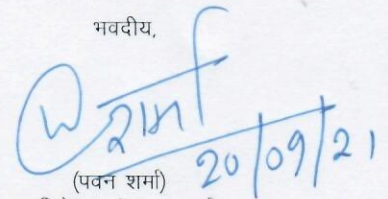 भवदीय,
शर्मा
20/09/21
(पवन शर्मा)